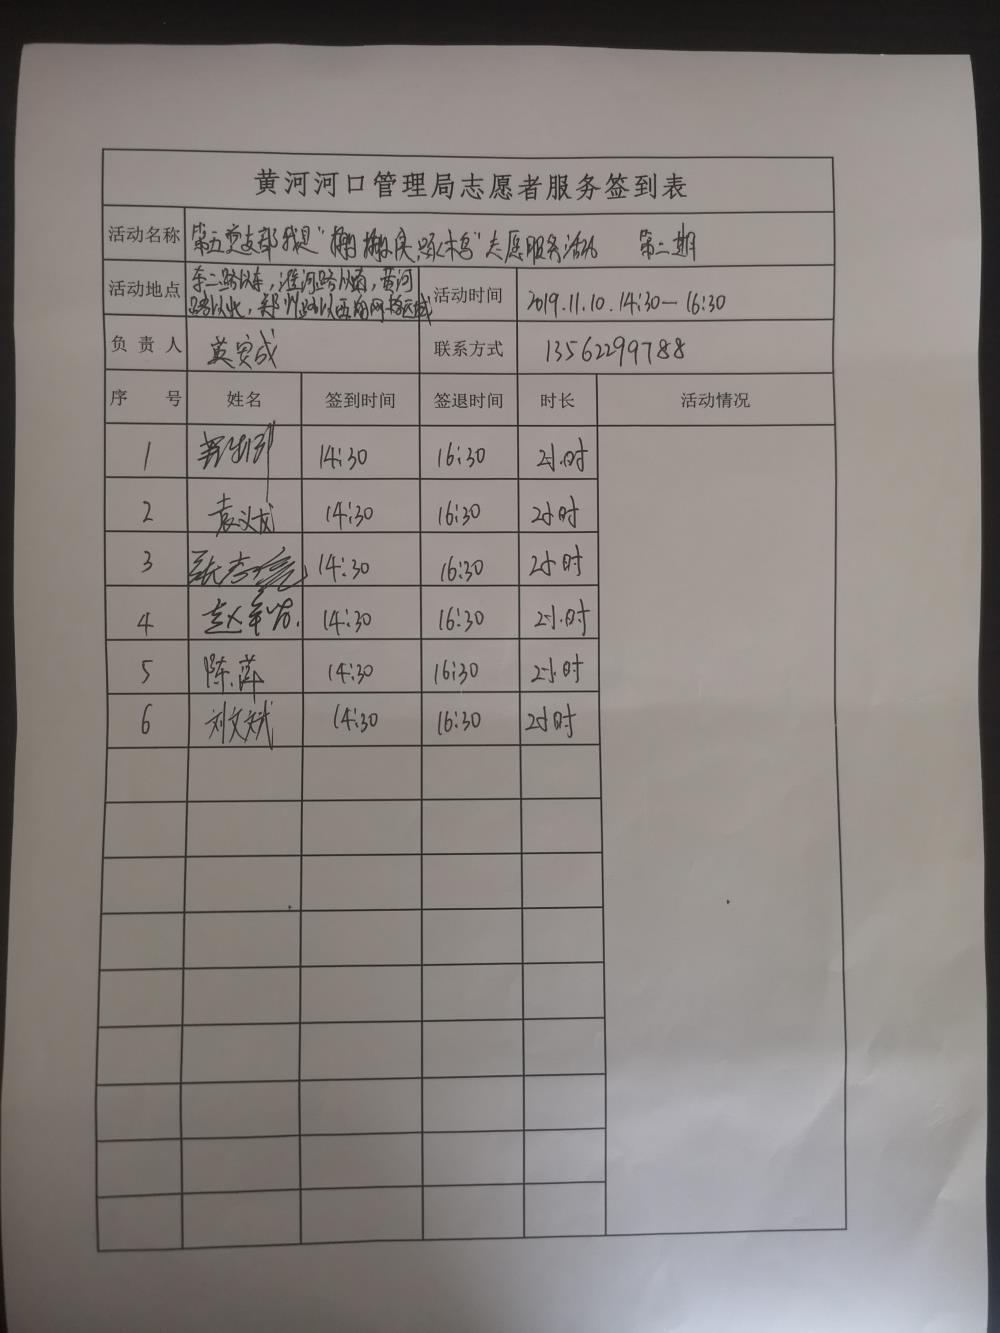 黄河河口管理局志愿者服务签到表
活动名称 第五党支部我是"榭榭侠 啄木鸟"志愿服务活动 第二期
活动地点 东二路以东，淮河路以南，黄河
路以北，郑州路以西的网格区域
活动时间 2019.11.10.14:30—16:30
负责人 联系方式 13562299788
序号 姓名 签到时间 签退时间 时长 活动情况
1 14:30 16:30 2小时
2 袁义成 14:30 16:30 2小时
3 14:30 16:30 2小时
4 14:30 16:30 2小时
5 陈萍 14:30 16:30 2小时
6 刘文斌 14:30 16:30 2小时